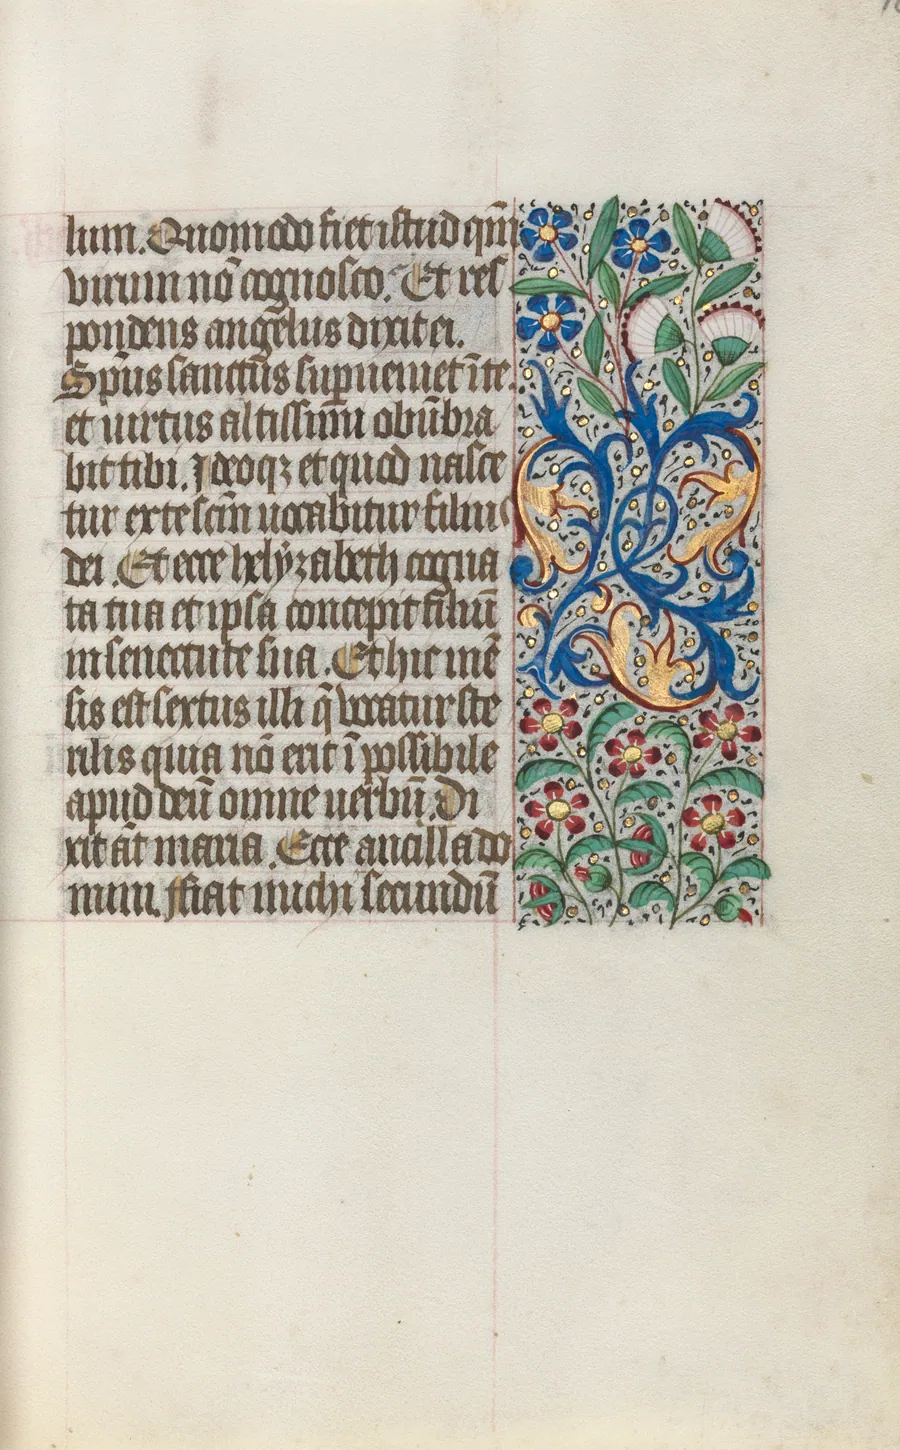 lum. Quomodo fiet istud qm̄
virum nō cognosco. Et res
pondens angelus dixit ei.
Sp̄us sanctus superueniet ī te.
et uirtus altissimi obūbra
bit tibi. Ideoqz et quod nasce
tur ex te scm̄ uocabitur filius
dei. Et ecce helyzabeth cogna
ta tua et ipsa concepit filiū
in senectute sua. Et hic mē
sis est sextus illi q̄ vocatur ste
rilis quia nō erit ī possibile
apud deū omne uerbū. Di
xit āt maria. Ecce ancilla do
mini. ffiat michi secundū